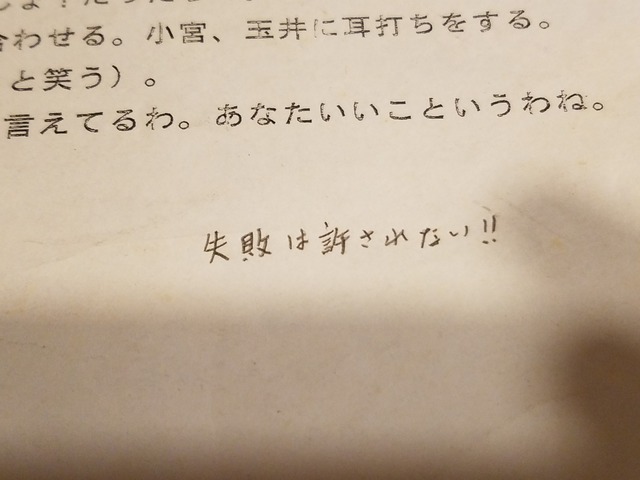 合わせる。小宮、玉井に耳打ちをする。
と笑う）。
言えてるわ。あなたいいこというわね。
失敗は許されない!!